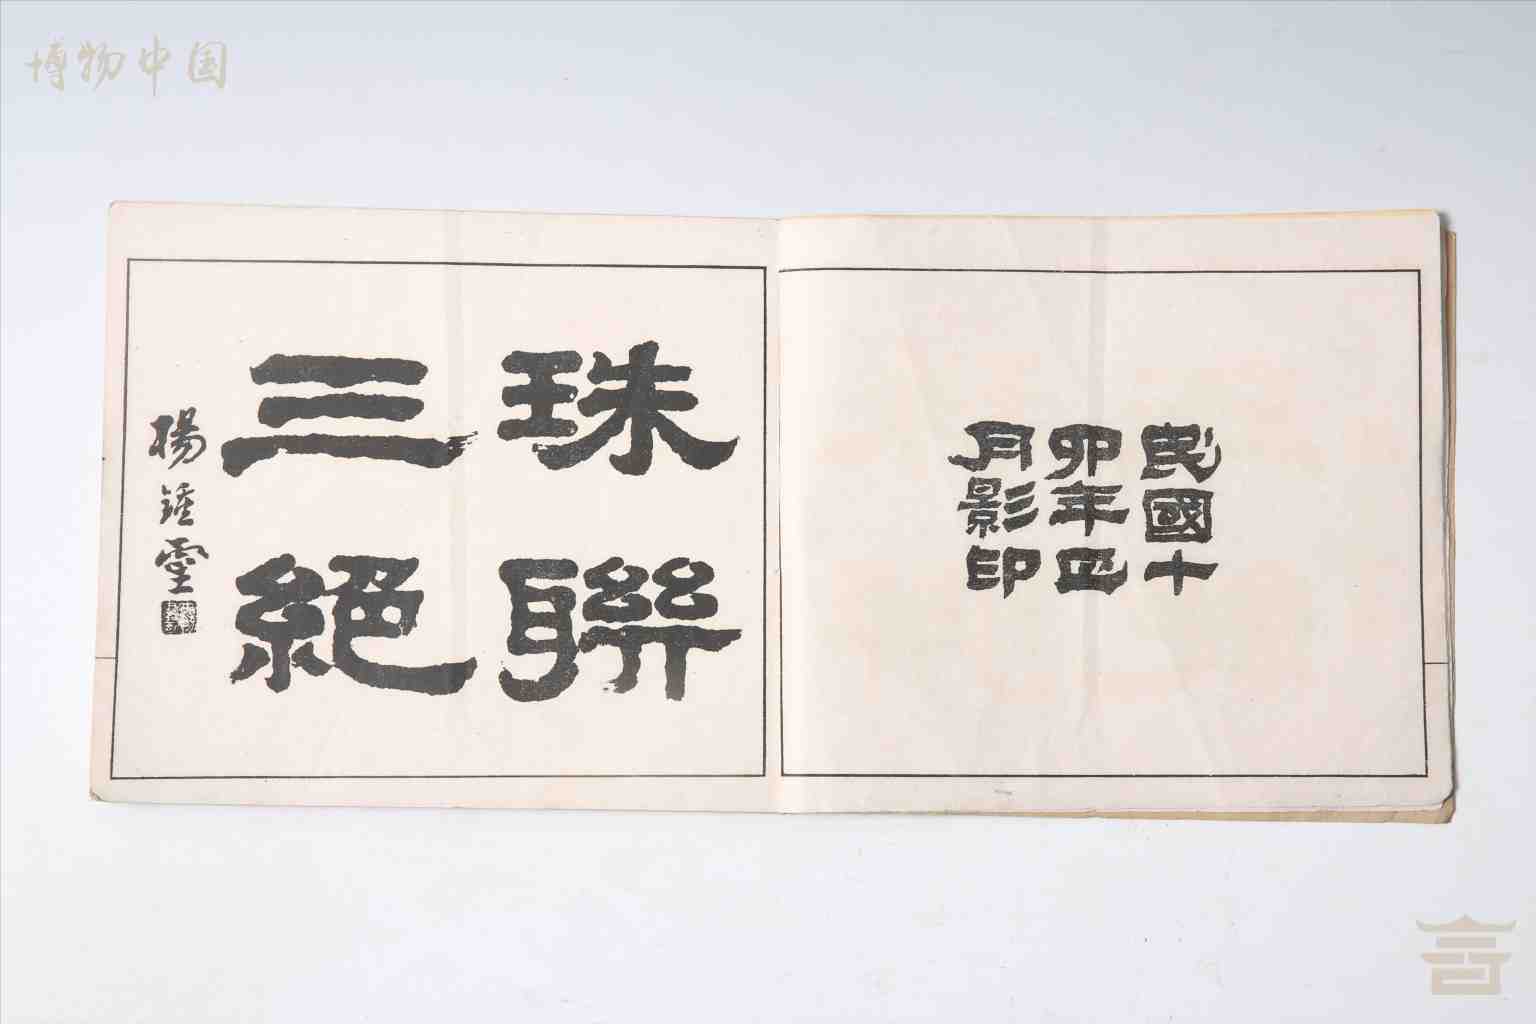 博物中国
民國丁
卯年正
月影印
珠聯
三絕
楊鍾靈